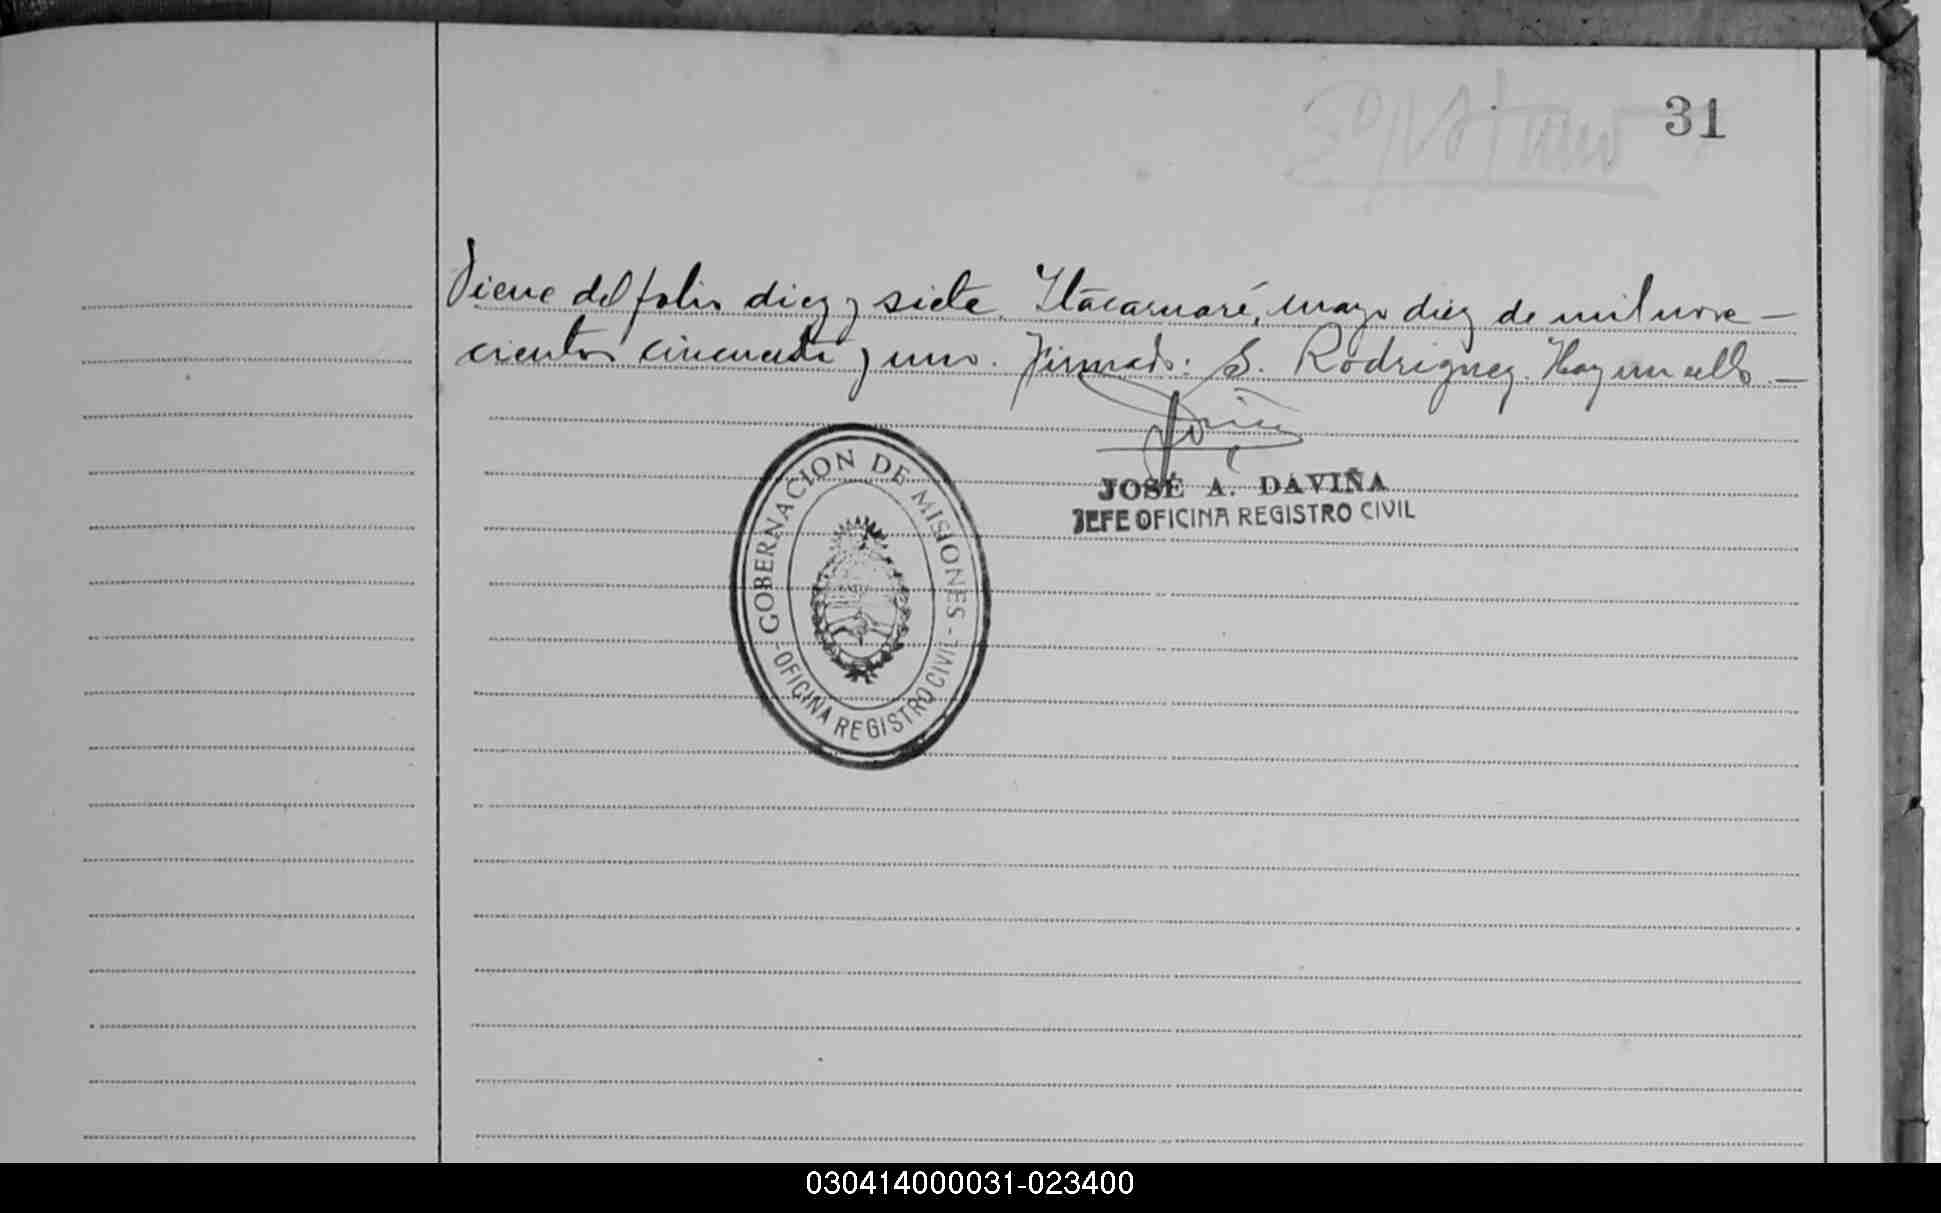 31
Viene del folio diez y siete. Itacaruaré, mayo diez de mil nove-
cientos cincuenta y uno. Firmado: S. Rodriguez. Hay un sello.-
JOSÉ A. DAVIÑA
JEFE OFICINA REGISTRO CIVIL
GOBERNACION DE MISIONES -
- OFICINA REGISTRO CIVIL
030414000031-023400